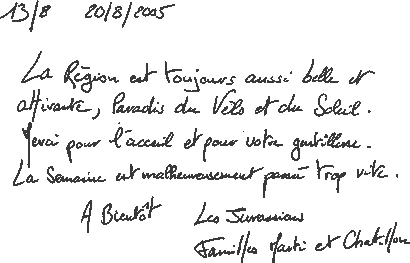 13/8 20/8/2005
La Région est toujours aussi belle et
attirante, Paradis du Vélo et du Soleil.
Merci pour l'acceuil et pour votre gentillesse.
La Semaine est malheureusement passée trop vite.
A Bientôt Les Jurassiens
Familles Marti et